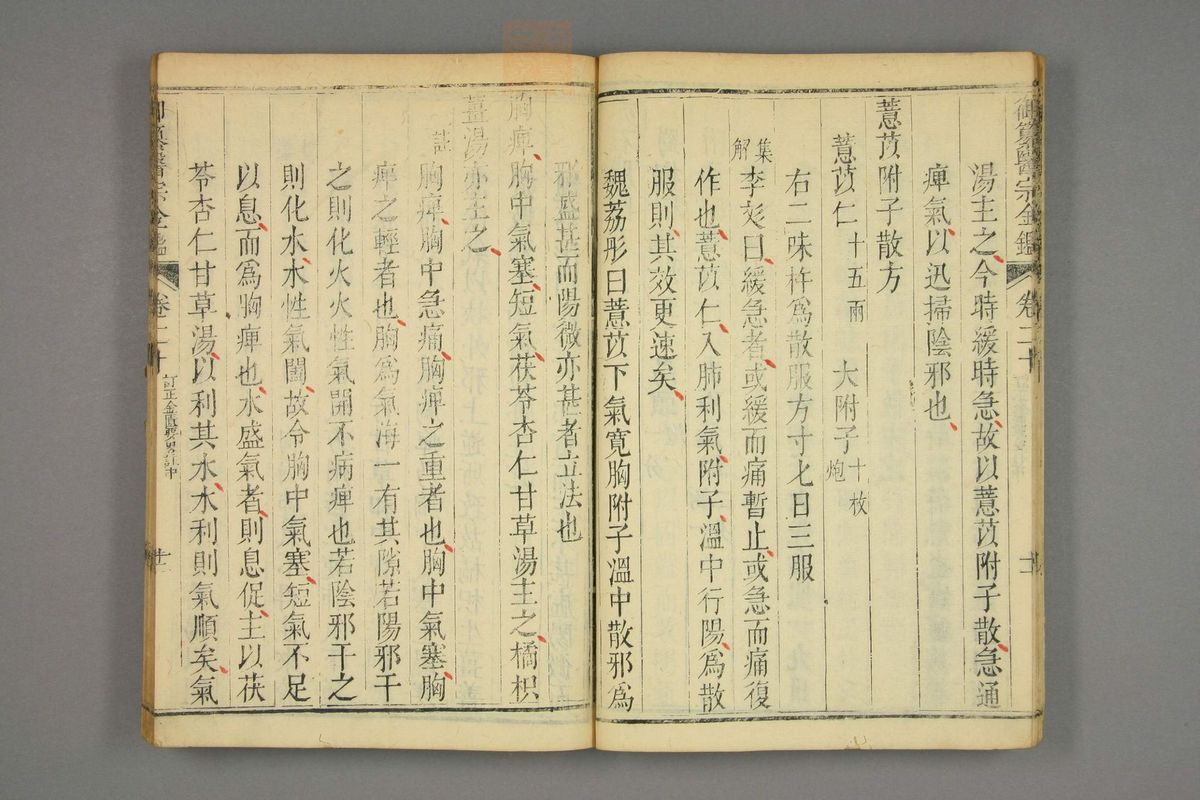 御纂醫宗金鑑 卷二十
湯主之今時緩時急故以薏苡附子散急通
痺氣以迅掃陰邪也
薏苡附子散方
薏苡仁十五兩 大附子十枚炮
右二味杵爲散服方寸匕日三服
集解 李彣曰緩急者或緩而痛暫止或急而痛復
作也薏苡仁入肺利氣附子溫中行陽爲散
服則其效更速矣
魏荔彤曰薏苡下氣寬胸附子溫中散邪爲
邪盛甚而陽微亦甚者立法也
胸痺胸中氣塞短氣茯苓杏仁甘草湯主之橘枳
薑湯亦主之
註 胸痺胸中急痛胸痺之重者也胸中氣塞胸
痺之輕者也胸爲氣海一有其隙若陽邪干
之則化火火性氣開不病痺也若陰邪干之
則化水水性氣闔故令胸中氣塞短氣不足
以息而爲胸痺也水盛氣者則息促主以茯
苓杏仁甘草湯以利其水水利則氣順矣氣
御纂醫宗金鑑 卷二十 訂正金匱要畧註中